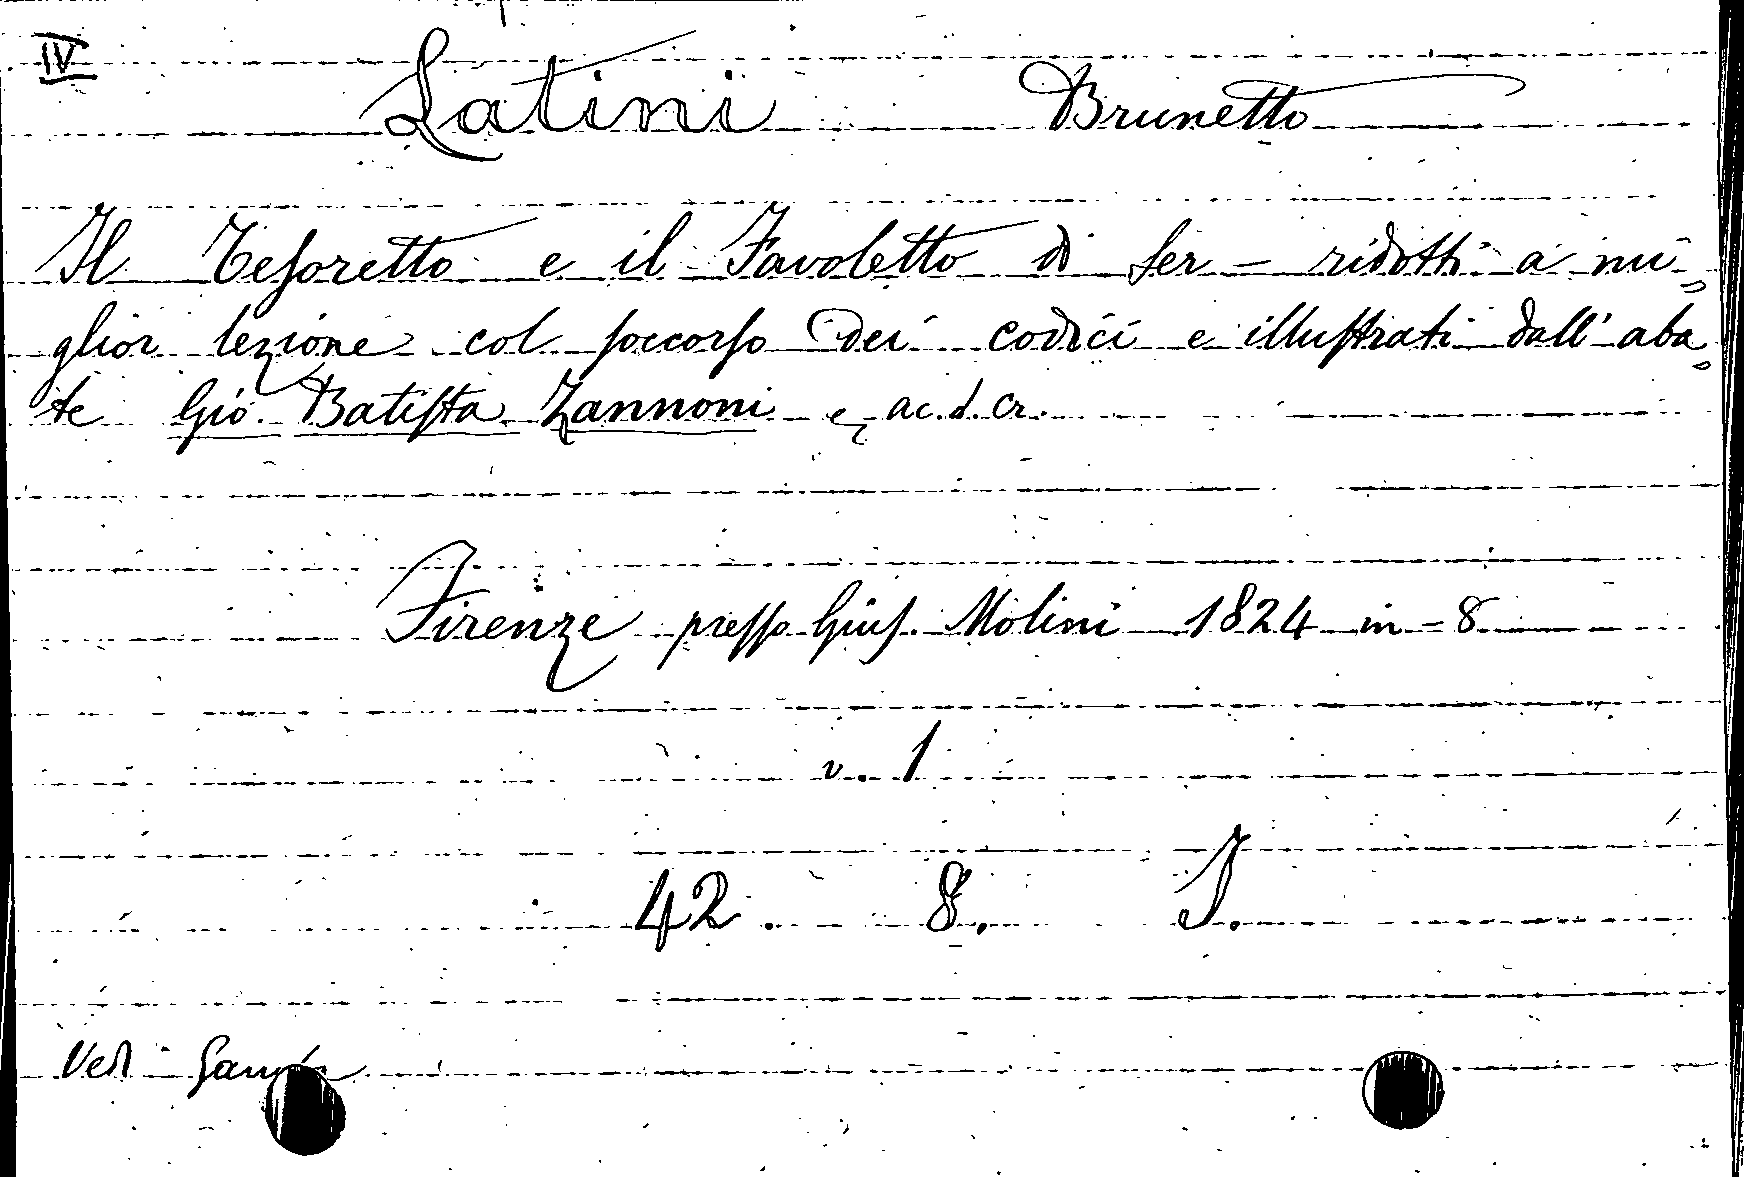 IV
Latini Brunetto
Il Tesoretto e il Favoletto di ser – ridotti a mi„
glior lezione col soccorso dei codici e illustrati dall'aba„
te Gio. Batista Zannoni e ac. d. Cr.
Firenze presso Gius. Molini 1824 in-8
v. 1
42. 8. I.
Vedi